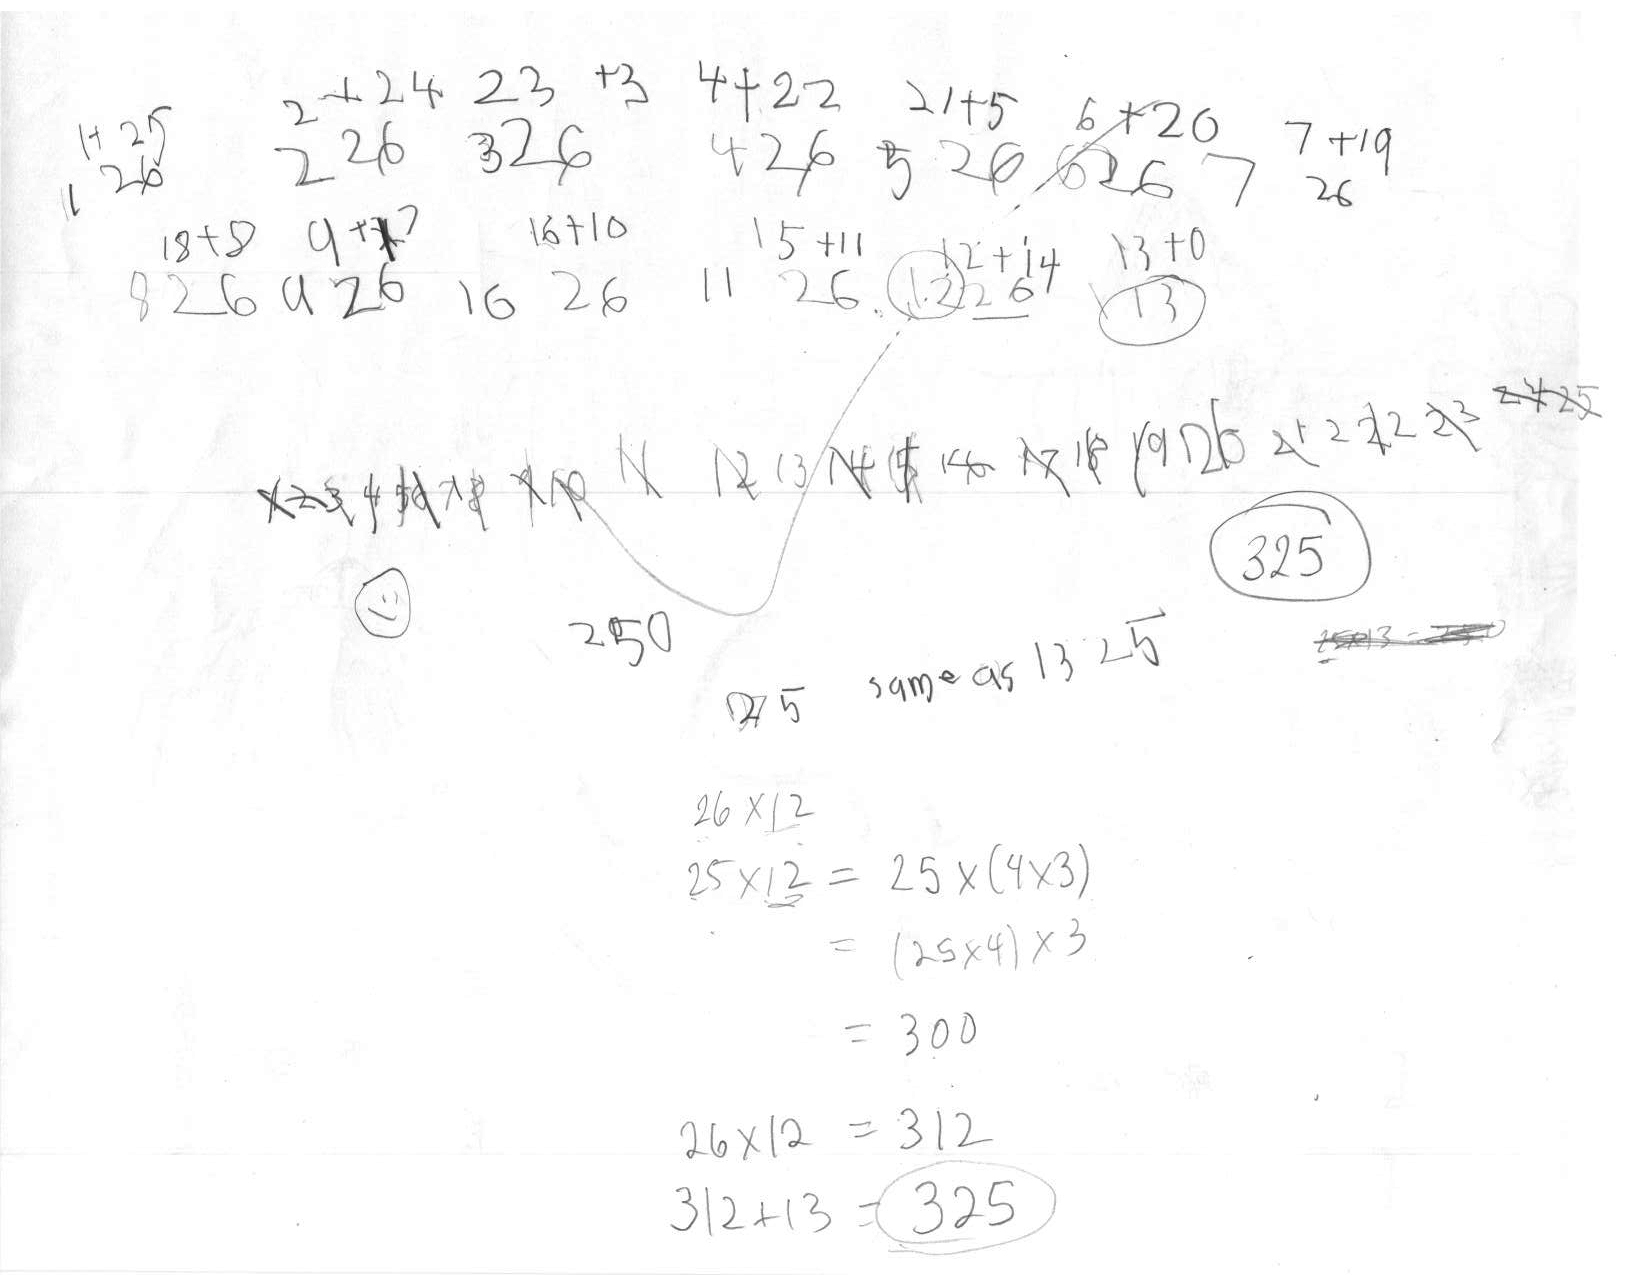 1+25 2+24 23 +3 4+22 21+5 6+20 7+19
1 26 2 26 3 26 4 26 5 26 6 26 7 26
18+8 9+17 16+10 15+11 12+14 13+0
8 26 9 26 10 26 11 26 12 26 13
1 2 3 4 5 6 7 8 9 10 11 12 13 14 15 16 17 18 19 20 21 22 23 24 25
325
250
275 same as 13 25
26 X 12
25 X 12 = 25 X (4X3)
= (25X4) X 3
= 300
26X12 = 312
312+13 = 325